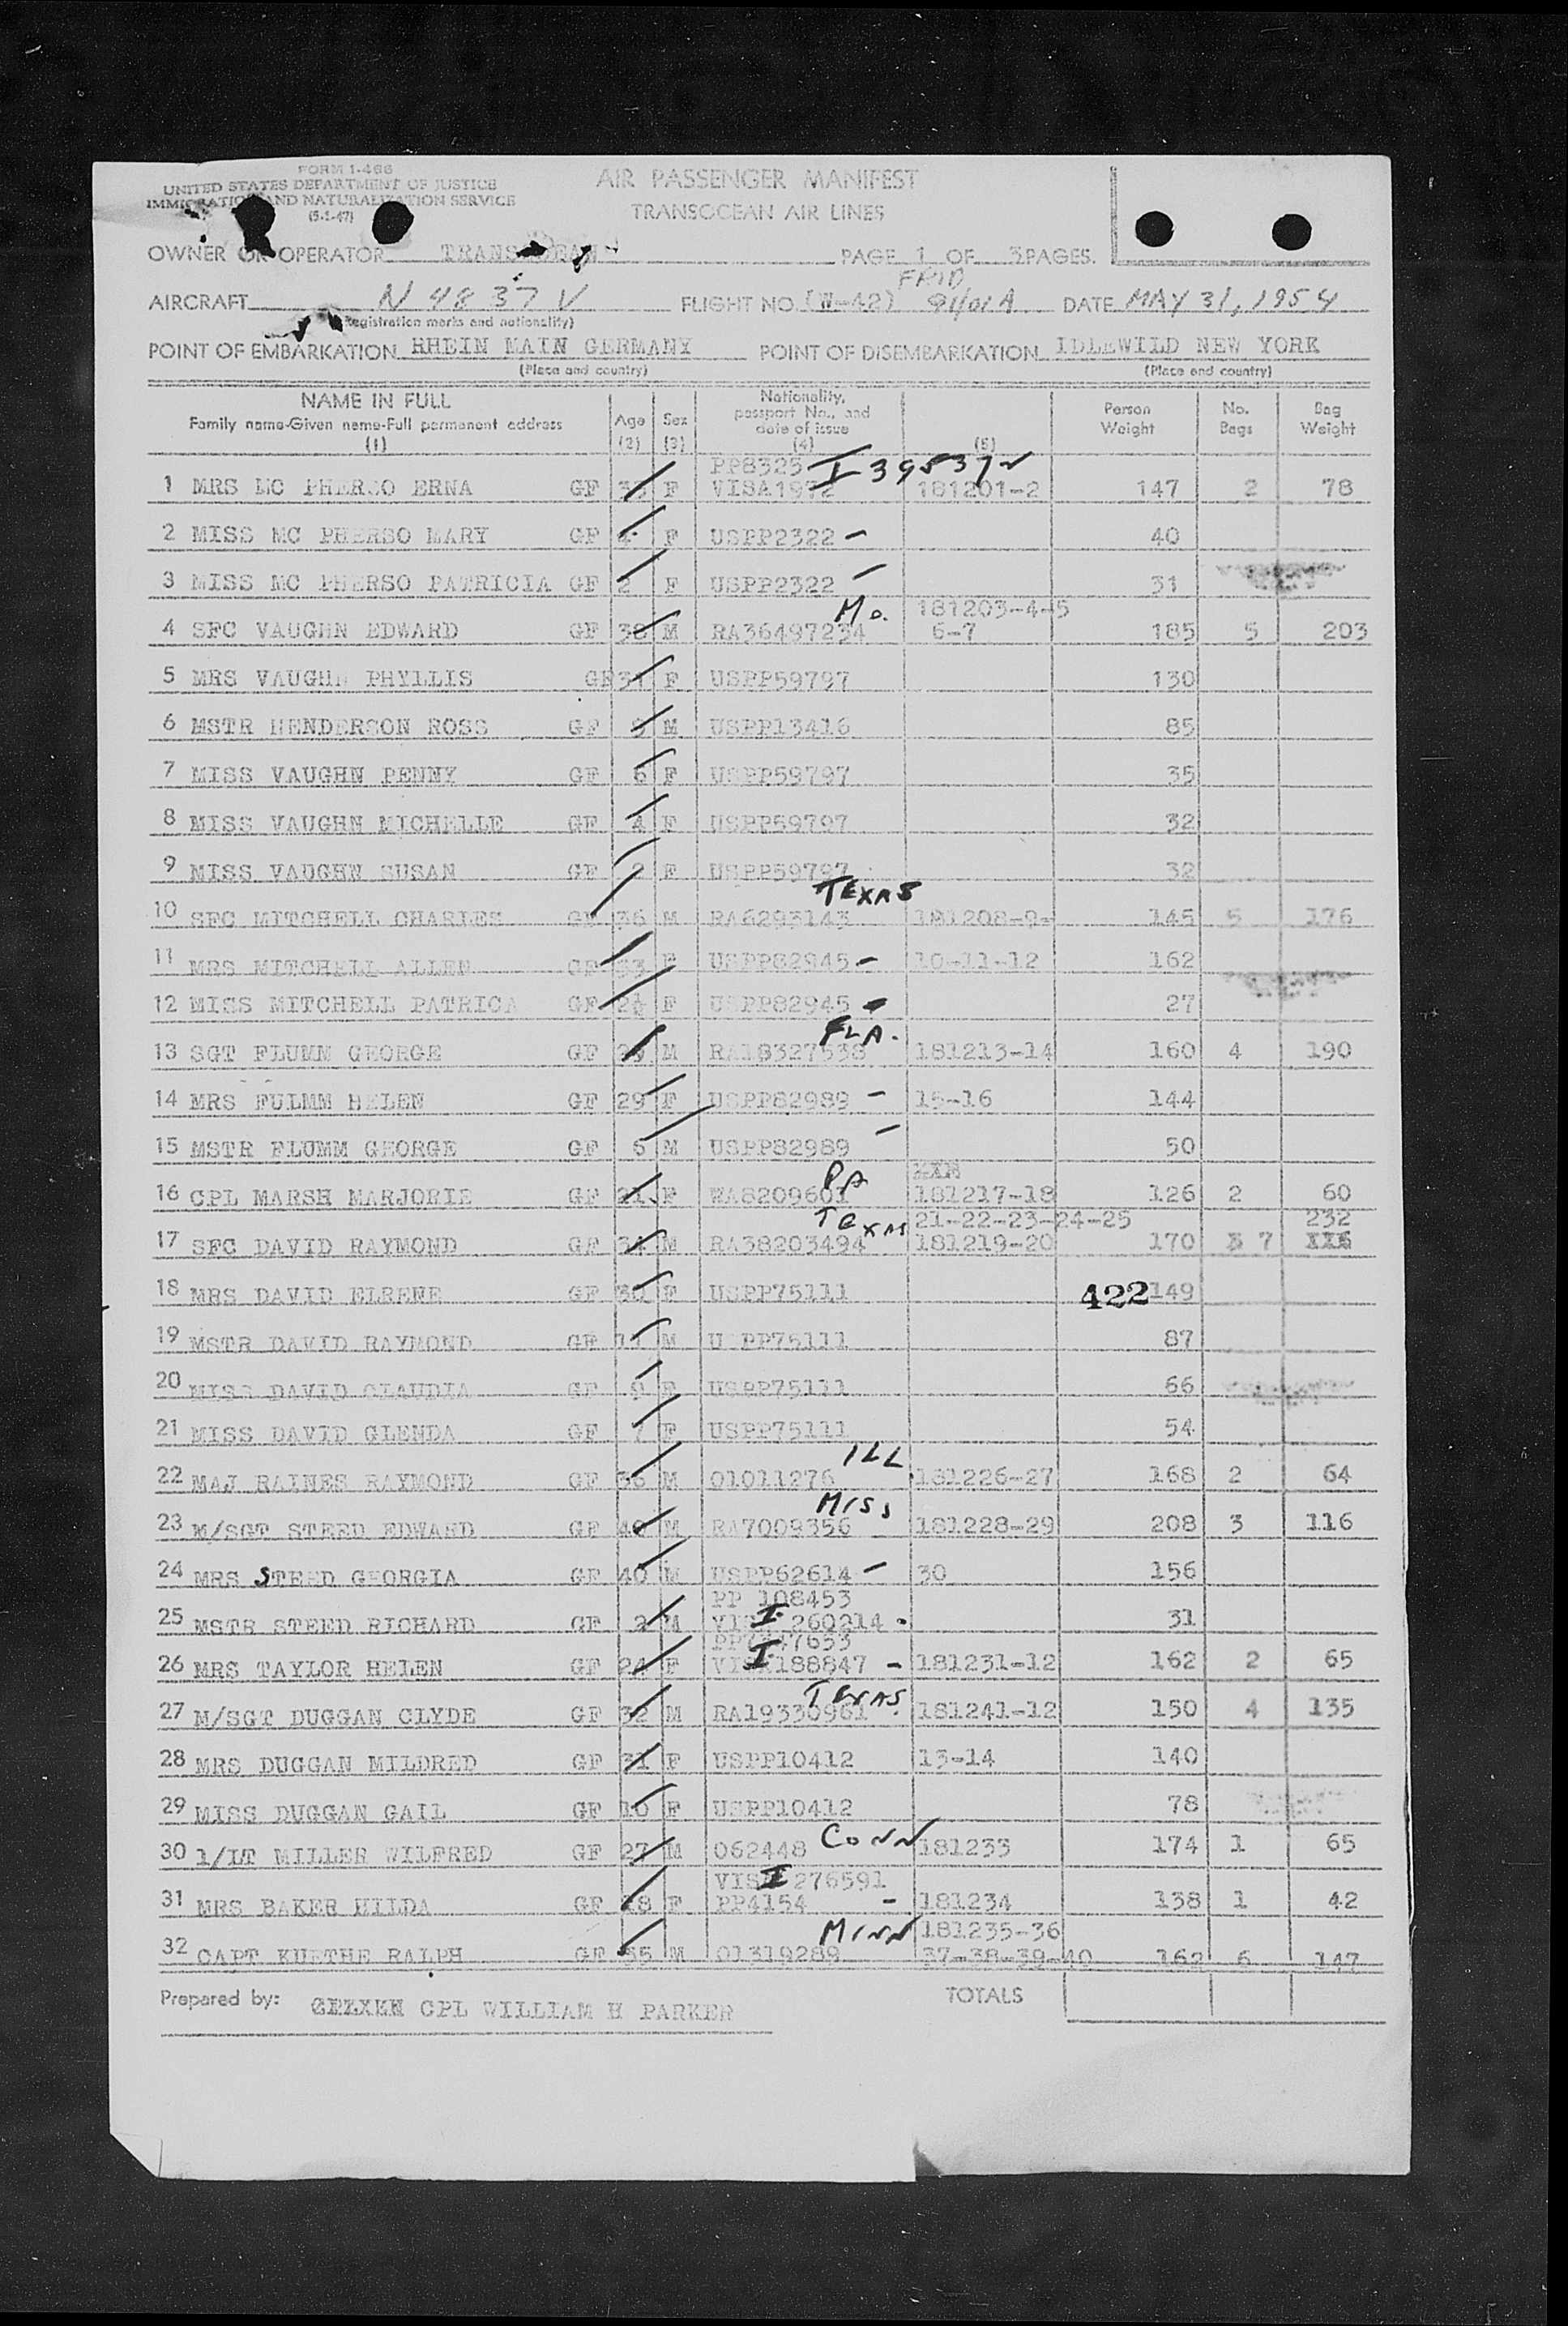 FORM I-466
UNITED STATES DEPARTMENT OF JUSTICE
IMMIGRATION AND NATURALIZATION SERVICE
(5-1-47)
AIR PASSENGER MANIFEST
TRANSOCEAN AIR LINES
OWNER OR OPERATOR TRANSOCEAN PAGE 1 OF 3 PAGES.
AIRCRAFT N 4837V FLIGHT NO. (W-42) DATE MAY 31, 1954
(Registration marks and nationality)
POINT OF EMBARKATION RHEIN MAIN GERMANY POINT OF DISEMBARKATION IDLEWILD NEW YORK
(Place and country) (Place and country)
NAME IN FULL
Family name-Given name-Full permanent address
(1) Age (2) Sex (3) Nationality, passport No., and date of issue (4) (5) Person Weight No. Bags Bag Weight
PP8325 I 39537
1 MRS MC PHERSO ERNA GF F VISA1972 181201-2 147 2 78
2 MISS MC PHERSO MARY GF 4 F USPP2322 - 40
3 MISS MC PHERSO PATRICIA GF 2 F USPP2322 - 31
Mo. 181203-4-5
4 SFC VAUGHN EDWARD GF 38 M RA36497234 6-7 185 5 203
5 MRS VAUGHN PHYLLIS GF 31 F USPP59797 130
6 MSTR HENDERSON ROSS GF 9 M USPP13416 85
7 MISS VAUGHN PENNY GF 6 F USPP59797 35
8 MISS VAUGHN MICHELLE GF 4 F USPP59797 32
9 MISS VAUGHN SUSAN GF 2 F USPP59797 32
TEXAS
10 SFC MITCHELL CHARLES GF 36 M RA6293143 181208-9- 145 5 176
11 MRS MITCHELL ALLEN GF 33 F USPP82945 - 10-11-12 162
12 MISS MITCHELL PATRICA GF 2½ F USPP82945 - 27
FLA.
13 SGT FLUMM GEORGE GF 29 M RA18327538 181213-14 160 4 190
14 MRS FULMM HELEN GF 29 F USPP82989 - 15-16 144
15 MSTR FLUMM GEORGE GF 5 M USPP82989 - 50
PA
16 CPL MARSH MARJORIE GF 21 F WA8209601 181217-18 126 2 60
TEXAS 21-22-23-24-25 232
17 SFC DAVID RAYMOND GF 34 M RA38203494 181219-20 170 7 XXX
18 MRS DAVID ELRENE GF 30 F USPP75111 422 149
19 MSTR DAVID RAYMOND GF 11 M USPP75111 87
20 MISS DAVID CLAUDIA GF 9 F USPP75111 66
21 MISS DAVID GLENDA GF 7 F USPP75111 54
ILL
22 MAJ RAINES RAYMOND GF 36 M 01011276 181226-27 168 2 64
MISS
23 M/SGT STEED EDWARD GF 40 M RA7009356 181228-29 208 3 116
24 MRS STEED GEORGIA GF 40 M USPP62614 - 30 156
PP 108453
25 MSTR STEED RICHARD GF 2 M VISA I 260214 - 31
26 MRS TAYLOR HELEN GF 24 F VISA I 188847 - 181231-12 162 2 65
TEXAS
27 M/SGT DUGGAN CLYDE GF 32 M RA19330961 181241-12 150 4 135
28 MRS DUGGAN MILDRED GF 31 F USPP10412 13-14 140
29 MISS DUGGAN GAIL GF 10 F USPP10412 78
CONN
30 1/LT MILLER WILFRED GF 27 M 062448 181233 174 1 65
VISA I 276591
31 MRS BAKER HILDA GF 18 F PP4154 - 181234 138 1 42
MINN 181235-36
32 CAPT KUETHE RALPH GF 35 M 01319289 37-38-39-40 162 6 147
Prepared by: CPL WILLIAM H PARKER TOTALS